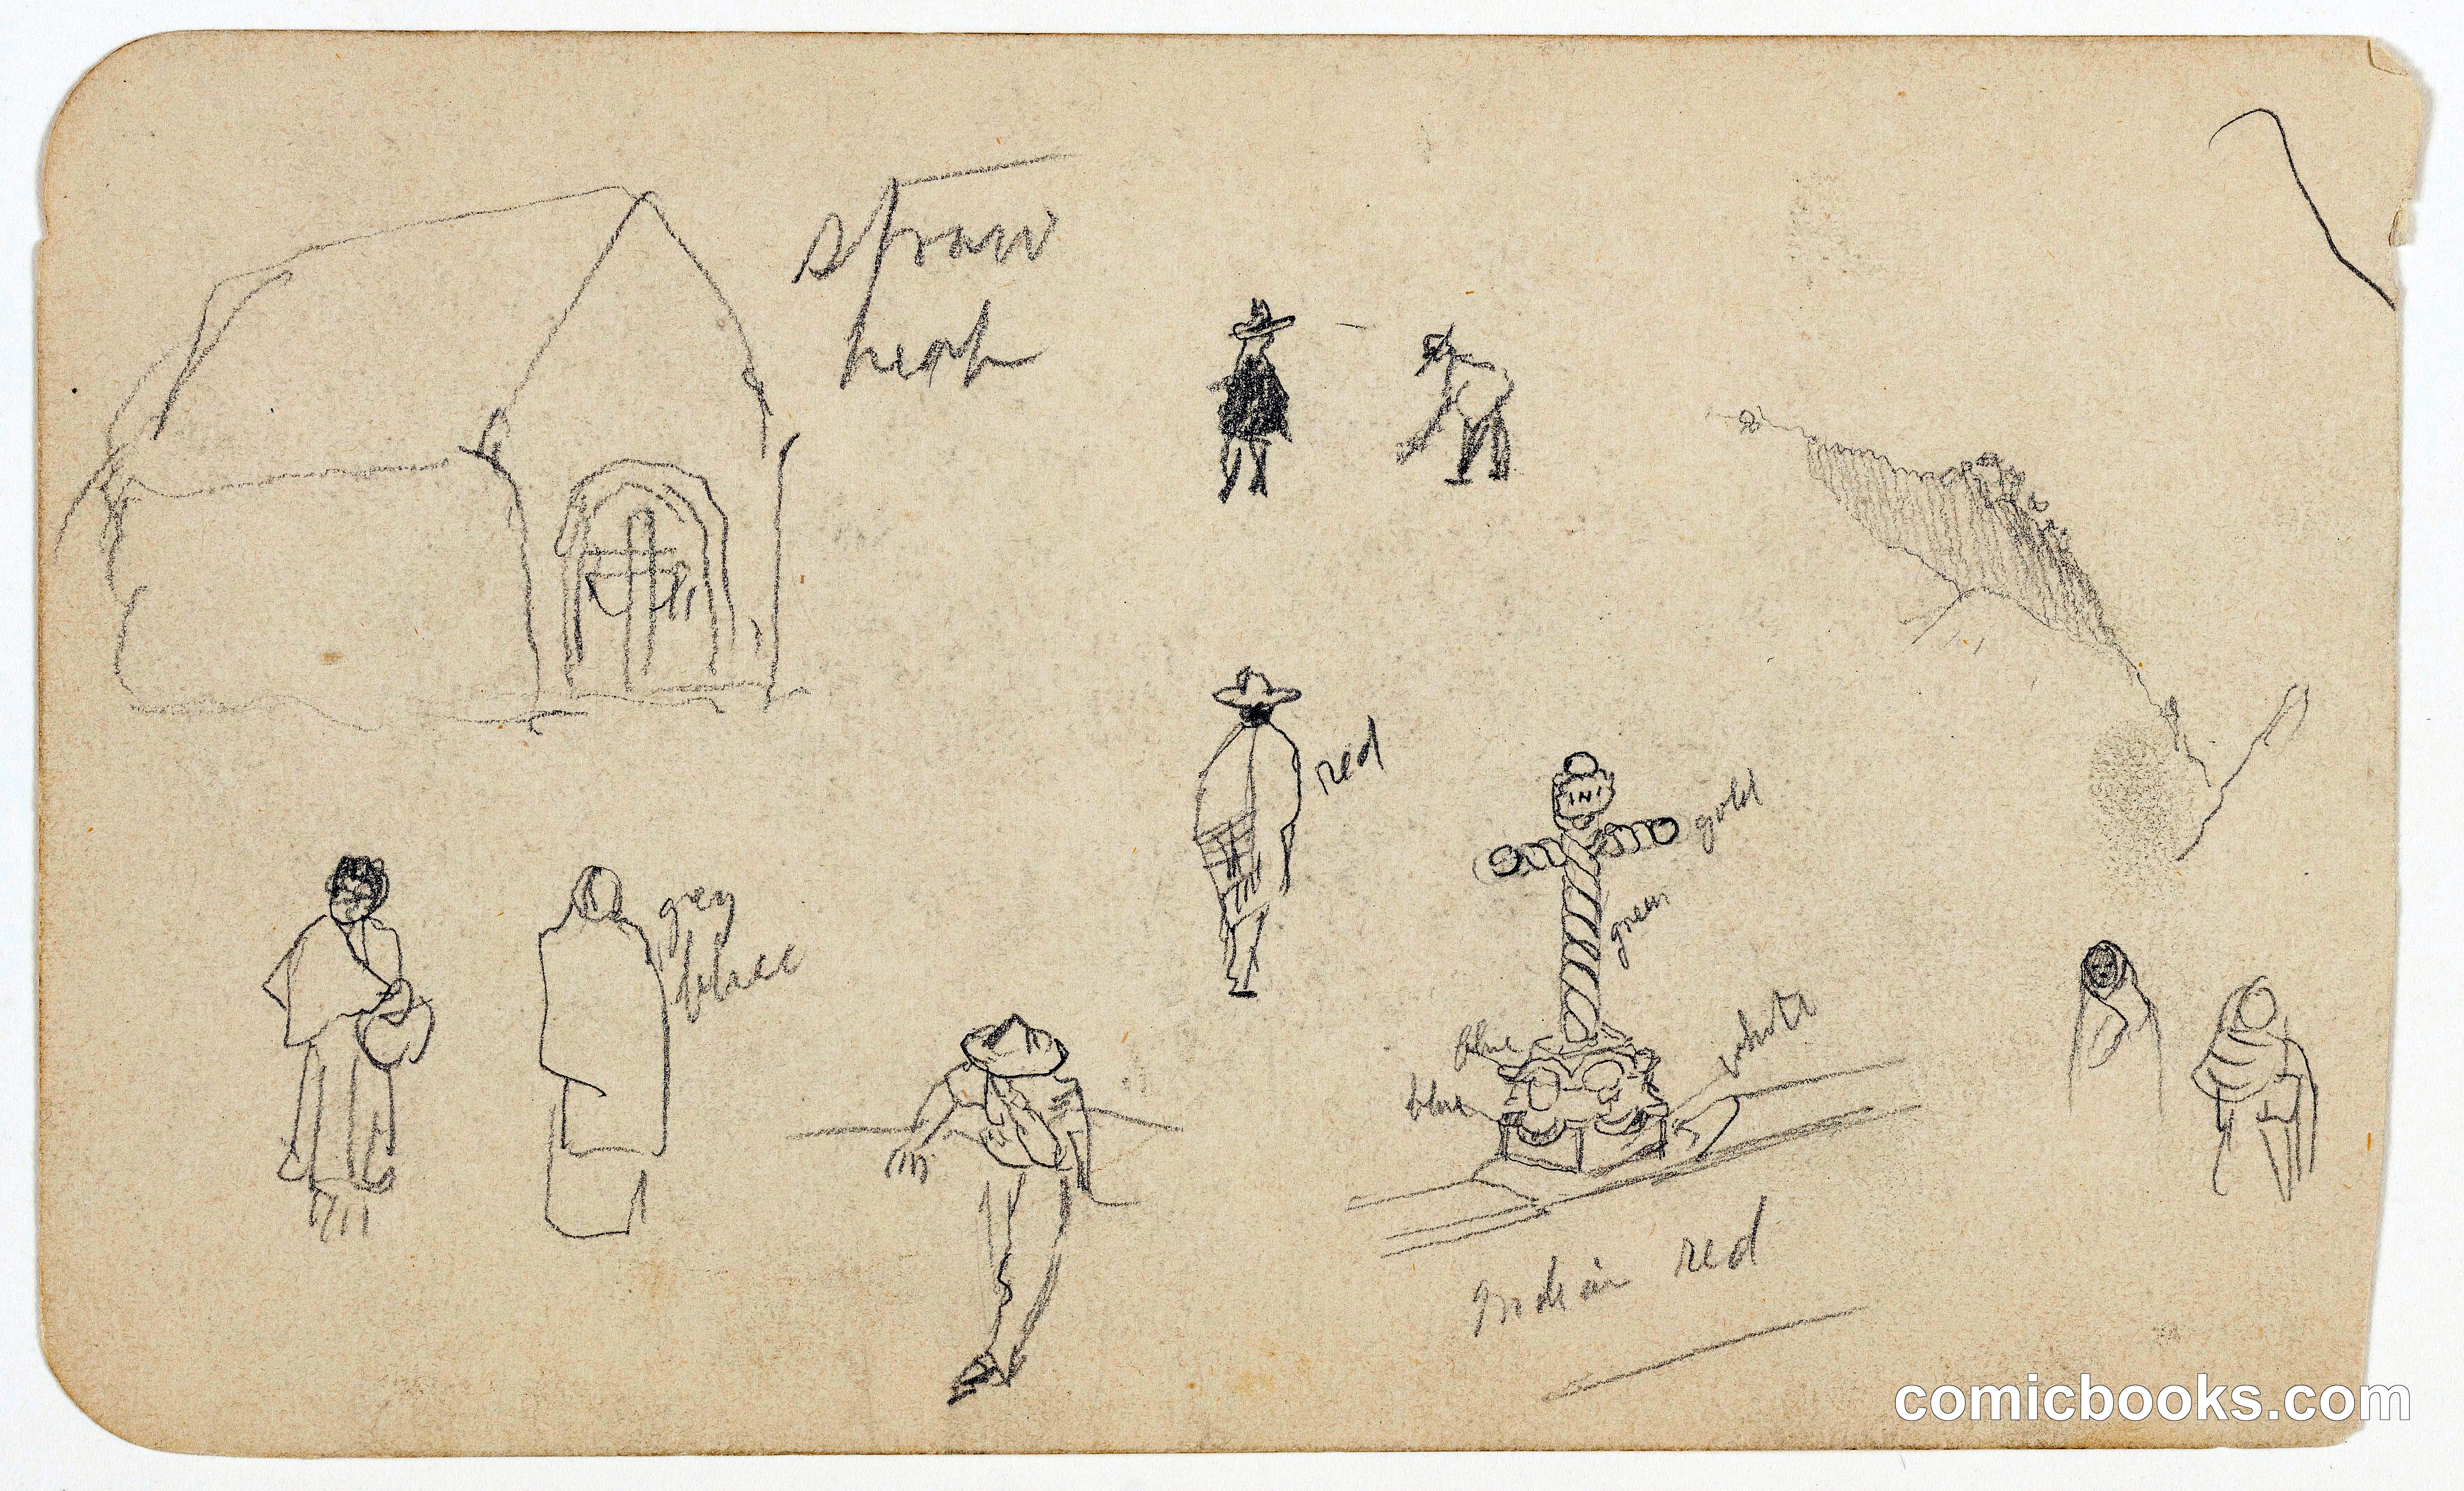 straw
red
INI
gold
grey
green
white
blue
blue
Indian red
comicbooks.com